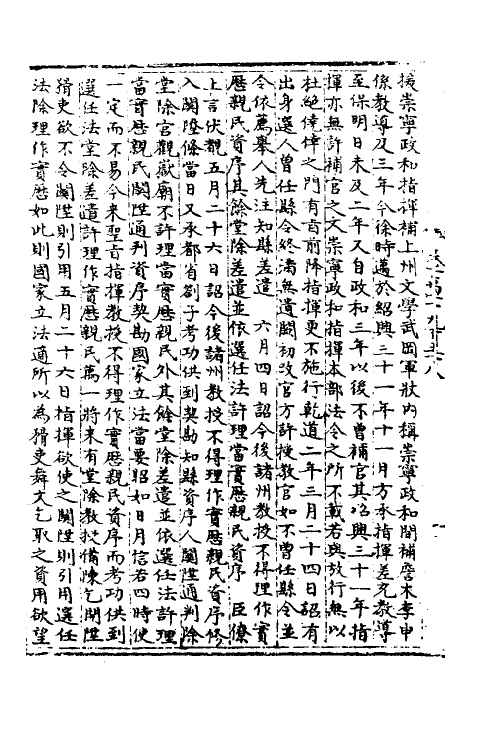 援崇寧政和指揮補上州文學武岡軍狀内稱崇寧政和間補詹末李申
係教導及三年今徐時邁於紹興三十一年十一月方承指揮差充教導
至保明日未及二年又自政和三年以後不曾補官其紹興三十一年指
揮亦無許補官之文崇寧政和指揮本部法令之所不載若與放行無以
杜絶僥倖之門有旨前降指揮更不施行乾道二年三月二十四日詔有
出身選人曽任縣令終滿無遺闕初改官方許授教官如不曽任縣令並
令依薦舉人先注知縣差遣 六月四日詔今後諸州教授不得理作實
歷親民資序其餘堂除差遣並依選任法許理當實歷親民資序 臣僚
上言伏覩五月二十六日詔今後諸州教授不得理作實歷親民資序修
入關陞條當日又承都省劄子考功供到契勘知縣資序人關陞通判除
堂除宫觀嶽廟不許理當實歷親民外其餘堂除差遣並依選任法許理
當實歷親民關陞通判資序契勘國家立法當要昭如日月信若四時使
一定而不易今来聖旨指揮教授不得理作實歷親民資序而考功供到
選任法堂除差遣許理作實歷親民萬一將来有堂除教授備陳乞關陞
猾吏欲不令關陞則引用五月二十六日指揮欲使之關陞則引用選任
法除理作實歷如此則國家立法適所以為猾吏舞文乞取之資用欲望